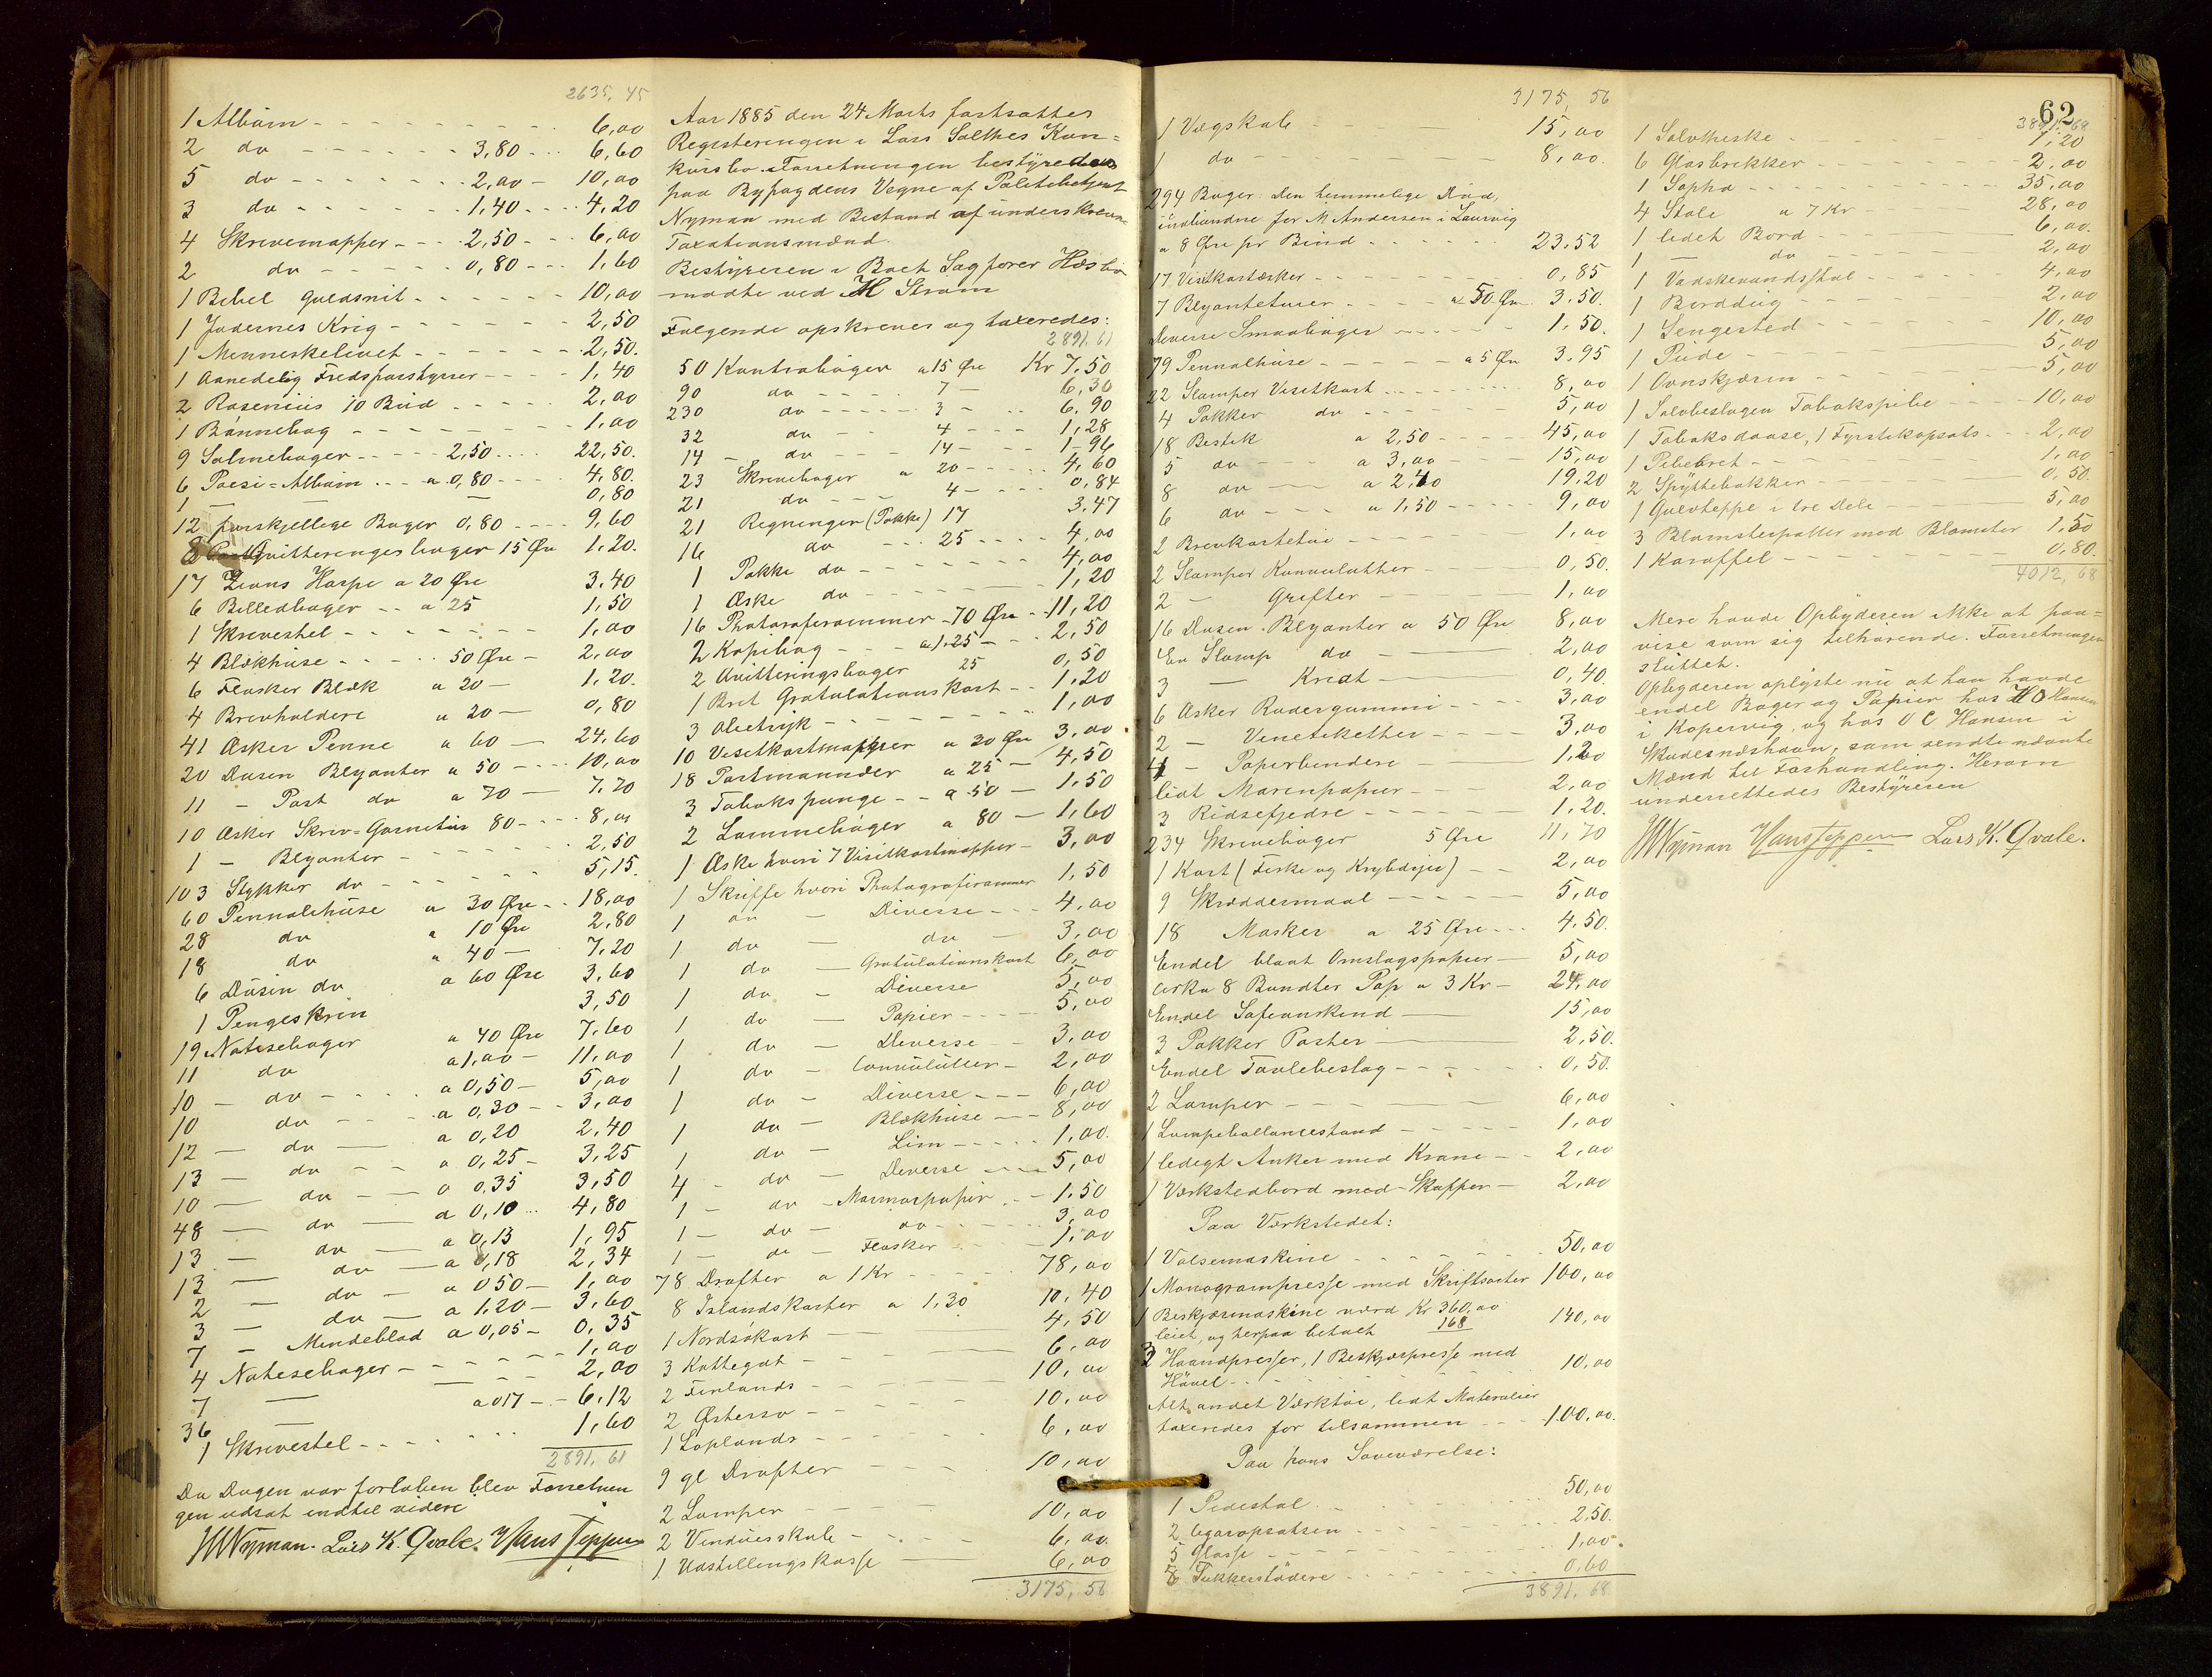 2635, 45
1 Album - - - 6,00
2 do - - - 3,80 - - 6,60
5 do - - - 2,00 - 10,00
3 do - - - 1,40 - - 4,20
4 Skrivemapper - - 2,50 - - 6,00
2 do - - - 0,80 - - 1,60
1 Bibel Guldsnit - - - 10,00
1 Jødernes Krig - - - 2,50
1 Menneskelivet - - - 2,50.
1 Aanedelig Fredsforstyrrer - - 1,40
2 Rosenius 10 Bind - - - 2,00
1 Bønnebog - - - 1,00
9 Salmebøger - - 2,50 - - 22,50.
6 Poesi=Album - - a 0,80 - - 4,80.
1 — — 0,80
12 forskjellige Bøger 0,80 - - 9,60
8 Qvitteringsbøger 15 Øre 1,20.
17 Zions Harpe a 20 Øre 3,40
6 Billedbøger - - a 25 1,50
1 Skrivestel - - - 1,00
4 Blækhuse - - - 50 Øre - 2,00
6 Flasker Blæk a 20 — 1,20.
4 Brevholdere a 20 — 0,80
41 Æsker Penne a 60 — 24,60
20 Dusin Blyanter a 50 - - 10,00
11 - Post do a 70 — 7,70
10 Æsker Skriv=Garnitur 80 - - 8,00
1 - Blyanter - - - 2,50
103 Stykker do - - - 5,15.
60 Pennalehuse a 30 Øre - - 18,00
28 do a 10 Øre 2,80
18 do a 40 — 7,20
6 Dusin do a 60 Øre 3,60
1 Pengeskrin 3,50
19 Notesebøger a 40 Øre 7,60
11 do a 1,00 — 11,00
10 - do - - - a 0,50 — 5,00
10 do - - - a 0,30 - - 3,00
12 — do — a 0,20 2,40
13 — do - - a 0,25 - 3,25
10 — do — a 0,35 3,50
48 — do — a 0,10 - - 4,80
13 — do — a 0,13 1,95
13 — do — a 0,18 2,34
2 - do - a 050 - 1,00
3 — do - a 1,20 - 3,60
7 - Mindeblad a 0,05 - 0,35
4 Notesebøger - - - 1,00
7 — — 2,00
36 — a 017 - - 6,12
1 Skrivestel - - - 1,60
2891, 61
Da Dagen var forløben blev Forretnin
gen udsat indtil videre
HNyman. Lars K. Qvale. Hans Jeppesen
Aar 1885 den 24 Marts fortsattes
Registreringen i Lars Salthes Kon=
kursbo. Forretningen bestyredes
paa Byfogdens Vegne af Politibetjent
Nyman med Bistand af underskrevne
Taxationsmænd.
Bestyreren i Boet Sagfører Husbo
mødte ved H Strøm
Følgende opskreves og taxeredes:
2891,61
50 Kontrabøger a 15 Øre Kr 7,50
90 do - - - 7 — 6,30
230 do - - - 3 - - - 6,90
32 do - - 4 - - - 1,28
14 - do - - - 14 — 1-96
23 Skrivebøger a 20 - - - 4,60
21 do - - - 4 — 0,84
21 Regninger (Pakke) 17 3,47
16 do - - - 25 - - - 4,00
1 Pakke do - - - 4,00
1 Æske do - - - 1,20
16 Photograferammer - 70 Øre - - 11,20
2 Kopibog - - - a 1,25 - - - 2,50
2 Qvitteringsbøger 25 0,50
1 Bret Gratulationskort - - 1,20
3 Olietryk - - - 1,00
10 Visitkortmapper a 30 Øre 3,00
18 Portmonnæer a 25 — 4,50
3 Tobakspunge - - a 50 — 1,50
2 Lommebøger a 80 — 1,60
1 Æske hvori 7 Visitkortmapper - 3,00
1 Skuffe hvori Photograferammer 1,50
1 do - Diverse - - - 4,00
1 do — do — 3,00
1 do — Gratulationskort 6,00
1 do - Diverse 5,00
1 do - Papier - - - 5,00
1 do - Diverse - - 3,00
1 do - Convolutter - 2,00
1 do - Diverse - - - 6,00
1 do - Blækhuse - - - 8,00
1 do - Lim - - - 1,00.
4 - do - Diverse - - - 5,00
1 - do - Marmorpapir - - 1,50
1 - do - do - - - 3,00
1 - do - Flasker - - - 1,00
78 Drafter a 1 Kr - - - 78,00
8 Islandskarter a 1,30 10,40
1 Nordsøkart - - - 4,50
3 Kattegat - - - 6,00
2 Finlands - - - 10,00
2 Østersø - - - 10,00
1 Laplands - - - 6,00
9 gl Drafter - - - 10,00
2 Lamper - - - 10,00
2 Vinduesskabe - - - 6,00
1 Udstillingskasse - - - 6,00
3175, 56
3175, 56
1 Vægskab - - - 15,00
1 do - - - 8,00.
294 Bøger: Den hemmelige Daad,
indbundne for M Andersen i Laurvig
a 8 Øre pr Bind - - - 23,52
17 Visitkortæsker - - - 0,85
7 Blyantetuier - - - a 50 Øre 3,50.
diverse Smaabøger - - - 1,50.
79 Pennalhuse - - - a 5 Øre 3,95
22 Slamper Visitkort - - - 8,00
4 Pakker do - - - 5,00
18 Bestik a 2,50 - - - 45,00
5 do - - a 3,00 - - - 15,00
8 do — a 2,40 19,20
6 do - - - a 1,50 - - - 9,00
2 Brevkortetui - - - 1,00
2 Slamper Konvolutter - - - 0,50.
2 — Grifter - - - 1,00
16 Dusin Blyanter a 50 Øre 8,00
En Slump do - - - 2,00
3 — Kridt - - - 0,40.
6 Æsker Radergummi - - - 3,00
2 - Vinetiketter - - - 3,00
4 - Papirbindere - - - 1,20
lidt Morenpapir - - - 2,00
3 Ridsefjedre - - - 1,20.
234 Skrivebøger 5 Øre 11,70
1 Kart (Fiske og Krybdyr) - - 2,00
9 Skræddermaal - - - 5,00
18 Masker a 25 Øre - - - 4,50.
Endel blaat Omslagspapir — 5,00
cirka 8 Bundter Pap a 3 Kr — 24,00
Endel Safianskind — 15,00
3 Pakker Porter — 2,50.
Endel Tavlebeslag - - - 0,50.
2 Lamper - - - 6,00
1 Lampeballancestand - - - 1,00
1 ledigt Anker med Krane - - 2,00
1 Værkstedbord med Skuffer — 2,00
Paa Værkstedet:
1 Valsemaskine - - - 50,00
1 Monogrampresse med Skriftsorter 100,00
1 Beskjærmaskine værd Kr 360,00
leiet, og herpaa betalt 168 140,00
3 Haandpresser, 1 Beskjærpresse med
Høvel - - - 10,00
Alt andet Værktøi, lidt Materialier
taxeredes for tilsammen - - - 100,00.
Paa hans Soveværelse:
1 Pidestal - - - 50,00
2 Cigaropsatsen - - - 2,50.
5 Glasse - - - 1,00
6 Tukkerstødere - - - 0,60
3891, 68
62
3891, 68
1 Sølvtheske - - - 1,20
6 Glasbrikker - - - 2,00
1 Sopha - - - 35,00
4 Stole a 7 Kr - - - 28,00
1 lidet Bord - - - 6,00.
1 — do - - - 2,00
1 Vadskevandsstol - - - 4,00
1 Borddug - - - 2,00
1 Sengested - - - 10,00
1 Pude - - - 5,00
1 Ovnskjærm - - - 5,00
1 Sølvbeslagen Tobakspibe - - - 10,00
1 Tobaksdaase, 1 Fyrstikopsats - - 2,00
1 Pibebret - - - 1,00
2 Spyttebakker - - - 0,50.
1 Gulvteppe i tre Dele - - - 5,00
3 Blomsterpotter med Blomster 1,50
1 Karaffel - - - 0,80.
4012, 68
Mere havde Opbyderen ikke at paa=
vise som sig tilhørende. Forretningen
sluttet.
Opbyderen oplyste nu at han havde
endel Bøger og Papier hos H O Hansen
i Kopervig, og hos O C Hansen i
Skudesnæshavn, som sendte nævnte
Mænd til Forhandling. Herom
underrettedes Bestyreren
HNyman Hans Jeppesen Lars K. Qvale.